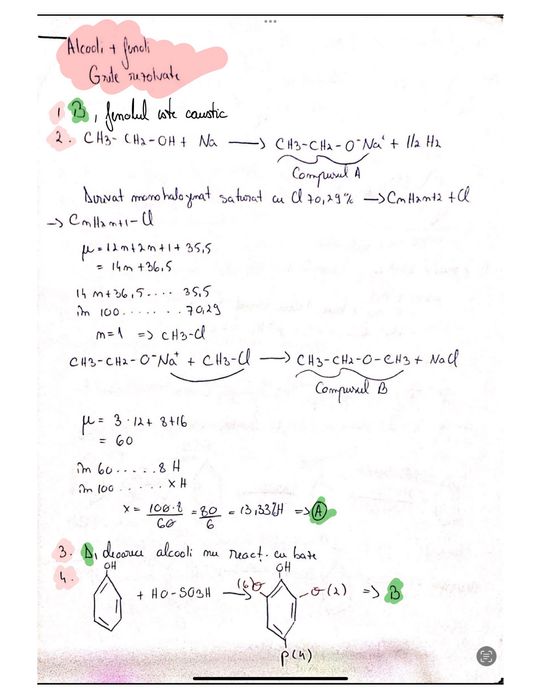 Alcooli + fenoli
Grile rezolvate
1 B, fenolul este caustic
2. CH3-CH2-OH + Na → CH3-CH2-O⁻Na⁺ + 1/2 H2
Compusul A
Derivat monohalogenat saturat cu Cl 70,29% → CnH2n+2 + Cl
→ CnH2n+1-Cl
μ = 12n+2n+1+35,5
= 14n+36,5
14n+36,5.... 35,5
în 100........70,29
n=1 => CH3-Cl
CH3-CH2-O⁻Na⁺ + CH3-Cl → CH3-CH2-O-CH3 + NaCl
Compusul B
μ = 3·12+8+16
= 60
în 60.....8 H
în 100......xH
x = 100·8/60 = 80/6 = 13,33%H => A
3. D, deoarece alcooli nu react. cu baze
4. OH + HO-SO3H → (6)o OH o(2) => B
p(4)